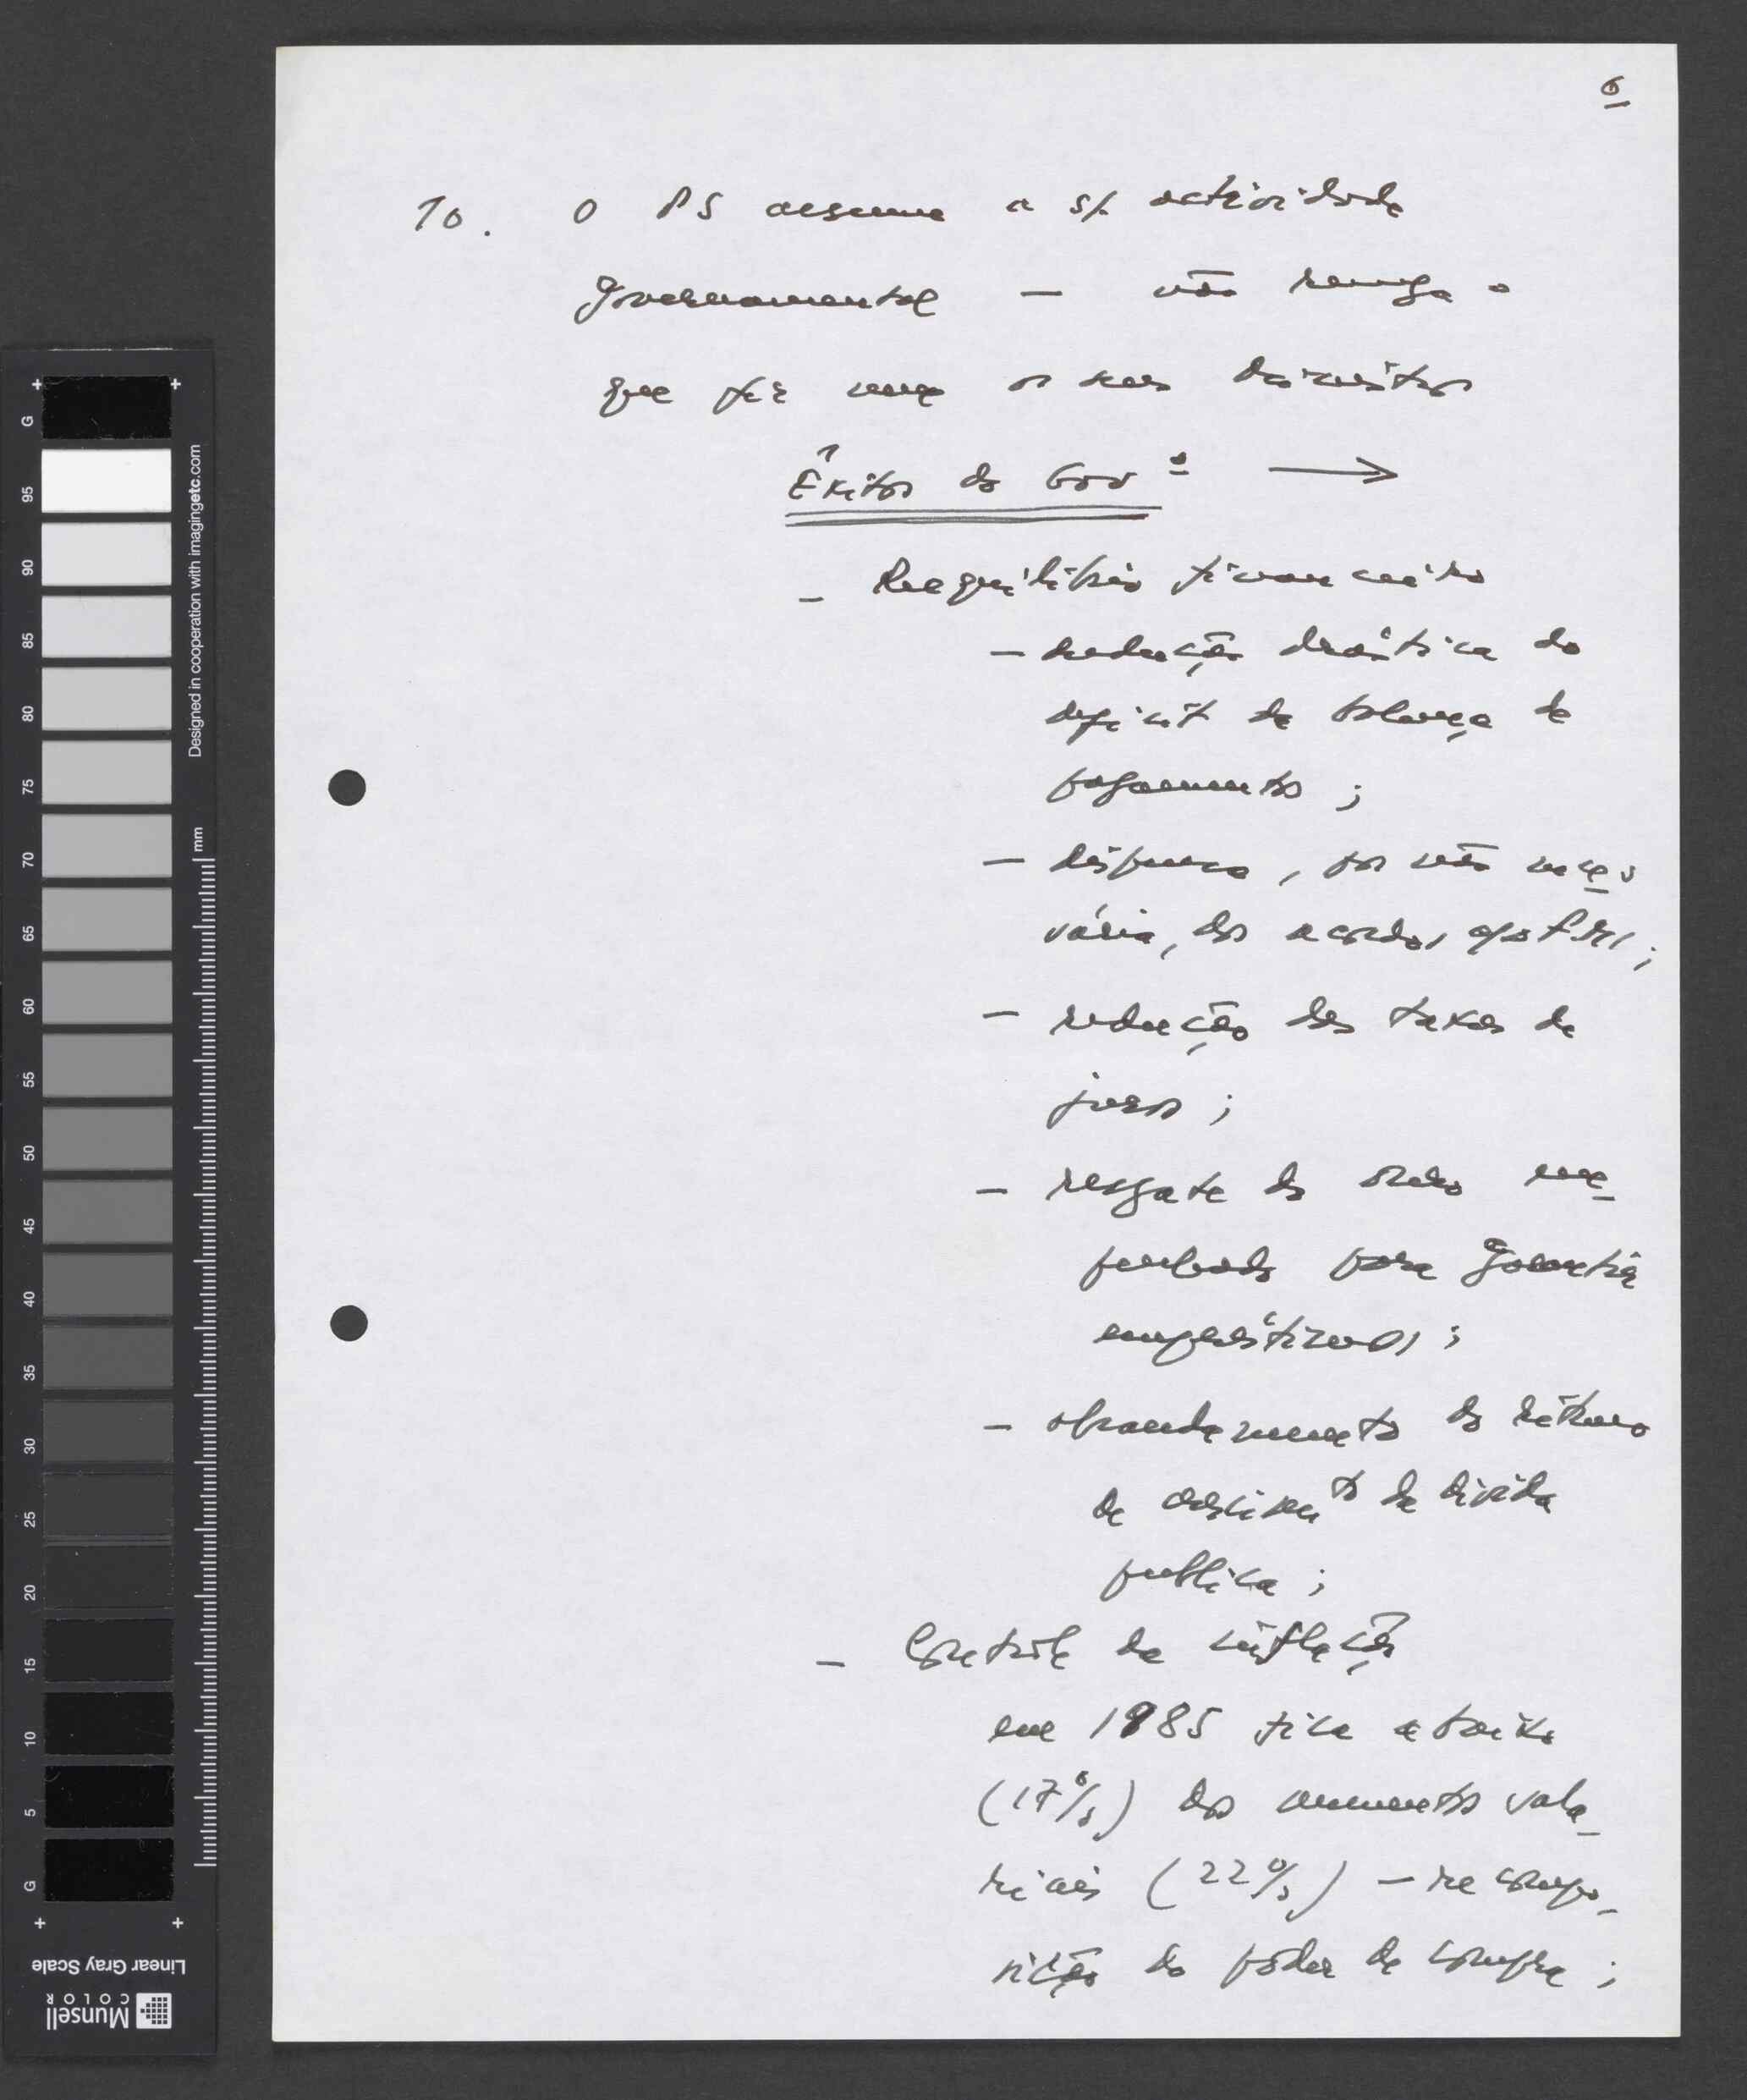 6
10. O PS assume a s/ actividade
governamental — não renega o
que fez nem os seus ministros
Êxitos do Govº →
- Reequilíbrio financeiro
- redução drástica do
deficit da balança de
pagamentos ;
- dispensa, por não neces
sária, dos acordos c/ o FMI ;
- redução das taxas de
juros ;
- resgate do ouro em_
penhado para garantia
empréstimos ;
- abrandamento do ritmo
de crescimento da dívida
publica ;
- Contrôle da inflação
em 1985 fica abaixo
(17%) dos aumentos sala_
riais (22%) — recompo_
sição do poder de compra ;
G
95
90
85
80
75
70
65
60
55
50
45
40
35
30
25
20
15
10
5
G
Designed in cooperation with imagingetc.com
mm
Linear Gray Scale
Munsell
COLOR